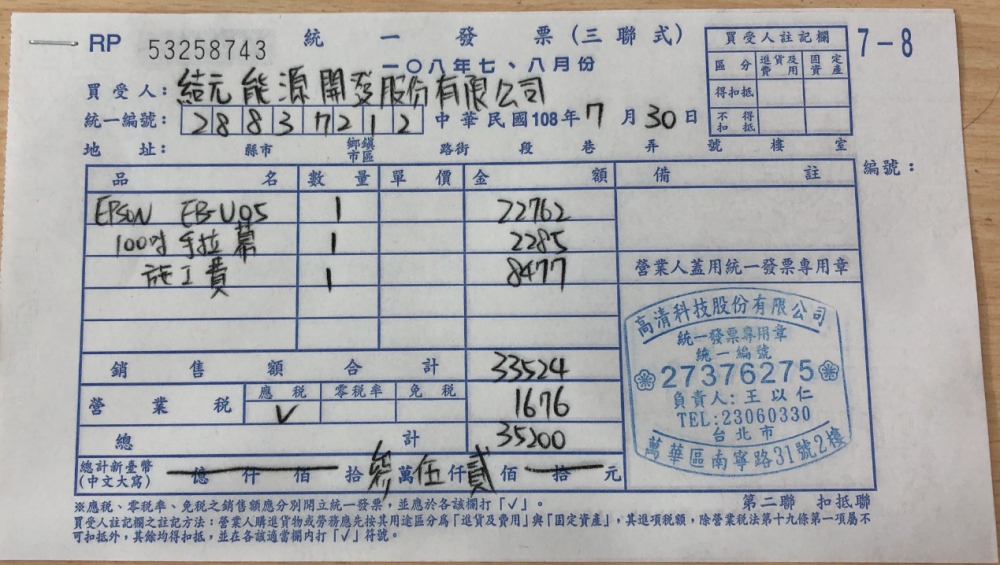 統一發票(三聯式)
RP 53258743
一〇八年七、八月份
7-8
買受人註記欄
區分 進貨及費用 固定資產
得扣抵
不得扣抵
買受人: 結元能源開發股份有限公司
統一編號: 28837212 中華民國108年7月30日
地址: 縣市 鄉鎮市區 路街 段 巷 弄 號 樓 室
編號:
品名 數量 單價 金額 備註
EPSON EB-U05 1 22762
100吋手拉幕 1 2285
施工費 1 8477
營業人蓋用統一發票專用章
高清科技股份有限公司
統一發票專用章
統一編號
27376275
負責人:王以仁
TEL:23060330
台北市
萬華區南寧路31號2樓
銷售額合計 33524
營業稅 應稅 零稅率 免稅 1676
V
總計 35200
總計新臺幣(中文大寫) 億 仟 佰 拾 參 萬 伍 仟 貳 佰 拾 元
第二聯 扣抵聯
※應稅、零稅率、免稅之銷售額應分別開立統一發票,並應於各該欄打「✓」。
買受人註記欄之註記方法:營業人購進貨物或勞務應先按其用途區分為「進貨及費用」與「固定資產」,其進項稅額,除營業稅法第十九條第一項屬不
可扣抵外,其餘均得扣抵,並在各該適當欄內打「✓」符號。